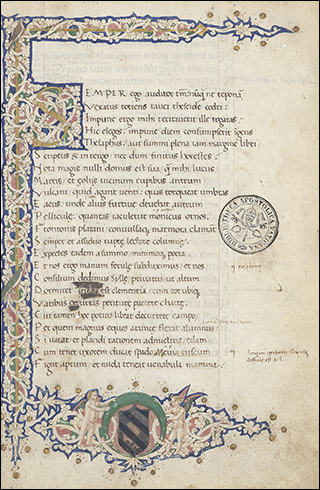 SEMPER ego auditor tm̄? nūq̄ ne reponā
Vexatus totiens rauci theseide codri:
Impune ergo mihi recitaverit ille togatas:
Hic elegos: impune diem consumpserit īgens
Thelaphus: aut summi plena iam margine libri
Scriptus & in tergo: nec dum finitus horestes:
Nota magis nulli domus est sua: quā mihi lucus
Martis: et eoliis vicinum rupibus antrum
Vulcani: quid agant venti: quas torqueat umbras
Eacus: unde alius furtive devehat aurum
Pellicule: quantas iaculetur monicus ornos:
Frontonis platani: convulsaq; marmora clamāt
Semper et assiduo rupte lectore columne:
Expectes eadem a summo, minimoq; poeta
Et nos ergo manum ferule subduximus: et nos
Consilium dedimus Sylle: privatus ut altum
Dormiret est clementia: cum tot ubiq;
Vatibus occurras periture parcere charte:
Cur tamen hoc potius libeat decurrere campo
Per quem magnus equos aurunce flexit alumnus
Si vacat: et placidi rationem admittitis: edam
Cum tener uxorem ducat spado: Mevia tuscum
Figat aprum: et nuda teneat venabula mamma:
BIBLIOTHECA APOSTOLICA VATICANA